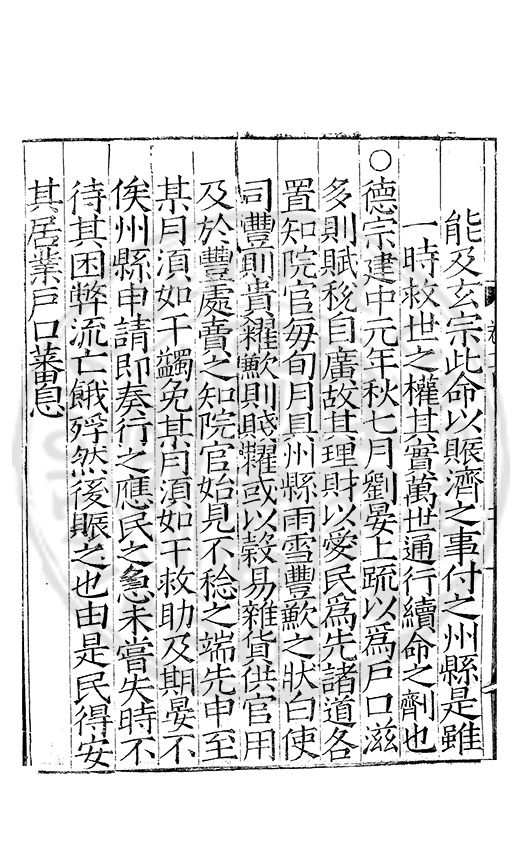 能及玄宗此命以賑濟之事付之州縣是雖
一時救世之權其實萬世通行續命之劑也
○德宗建中元年秋七月劉晏上疏以爲戶口滋
多則賦稅自廣故其理財以愛民爲先諸道各
置知院官每旬月具州縣雨雪豐歉之狀白使
司豐則貴糴歉則賤糶或以穀易雜貨供官用
及於豐處賣之知院官始見不稔之端先申至
某月須如干蠲免某月須如干救助及期晏不
俟州縣申請即奏行之應民之急未嘗失時不
待其困弊流亡餓殍然後賑之也由是民得安
其居業戶口蕃息